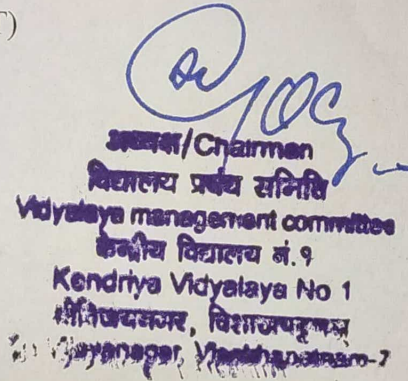 अध्यक्ष/Chairman
विद्यालय प्रबंध समिति
Vidyalaya management committee
केन्द्रीय विद्यालय नं.१
Kendriya Vidyalaya No 1
श्रीविजयनगर, विशाखापट्टणम
Vijayanagar, Visakhapatnam-7